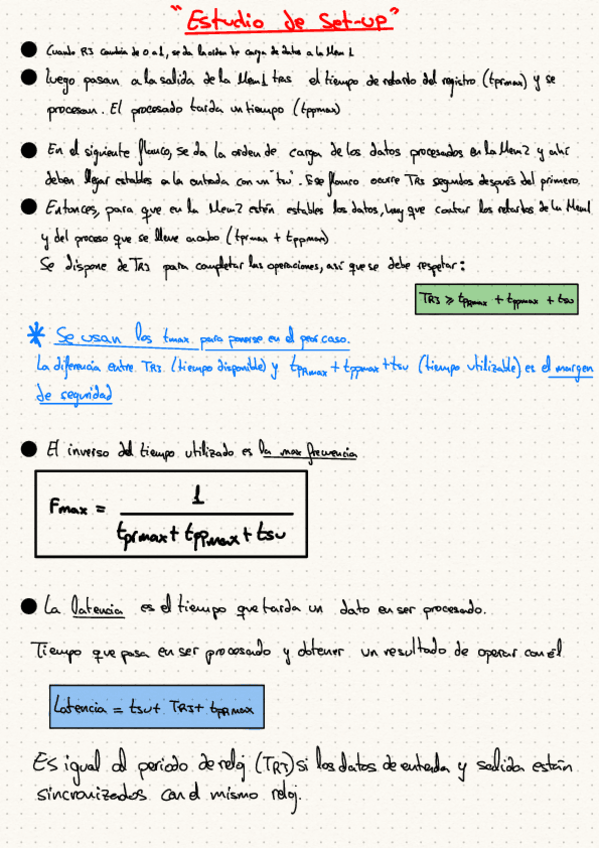 "Estudio de Set-up"
Cuando RJ cambia de 0 a 1, se da la orden de carga de datos a la Mem 1
Luego pasan a la salida de la Mem1 tras el tiempo de retardo del registro (tprmax) y se
procesan. El procesado tarda un tiempo (tppmax)
En el siguiente flanco, se da la orden de carga de los datos procesados en la Mem2 y ahí
deben llegar estables a la entrada con un "tsu". Ese flanco ocurre TRJ segundos después del primero.
Entonces, para que en la Mem2 estén estables los datos, hay que contar los retardos de la Mem1
y del proceso que se lleve a cabo (tprmax + tppmax)
Se dispone de TRJ para completar las operaciones, así que se debe respetar:
TRJ ≥ tPRmax + tppmax + tsu
* Se usan los tmax para ponerse en el peor caso.
La diferencia entre TRJ (tiempo disponible) y tPRmax + tppmax + tsu (tiempo utilizable) es el margen
de seguridad
El inverso del tiempo utilizado es la max frecuencia
Fmax = 1 / tprmax + tPPmax + tsu
La latencia es el tiempo que tarda un dato en ser procesado.
Tiempo que pasa en ser procesado y obtener un resultado de operar con él
Latencia = tsu + TRJ + tPRmax
Es igual al periodo de reloj (TRJ) si los datos de entrada y salida están
sincronizados con el mismo reloj.